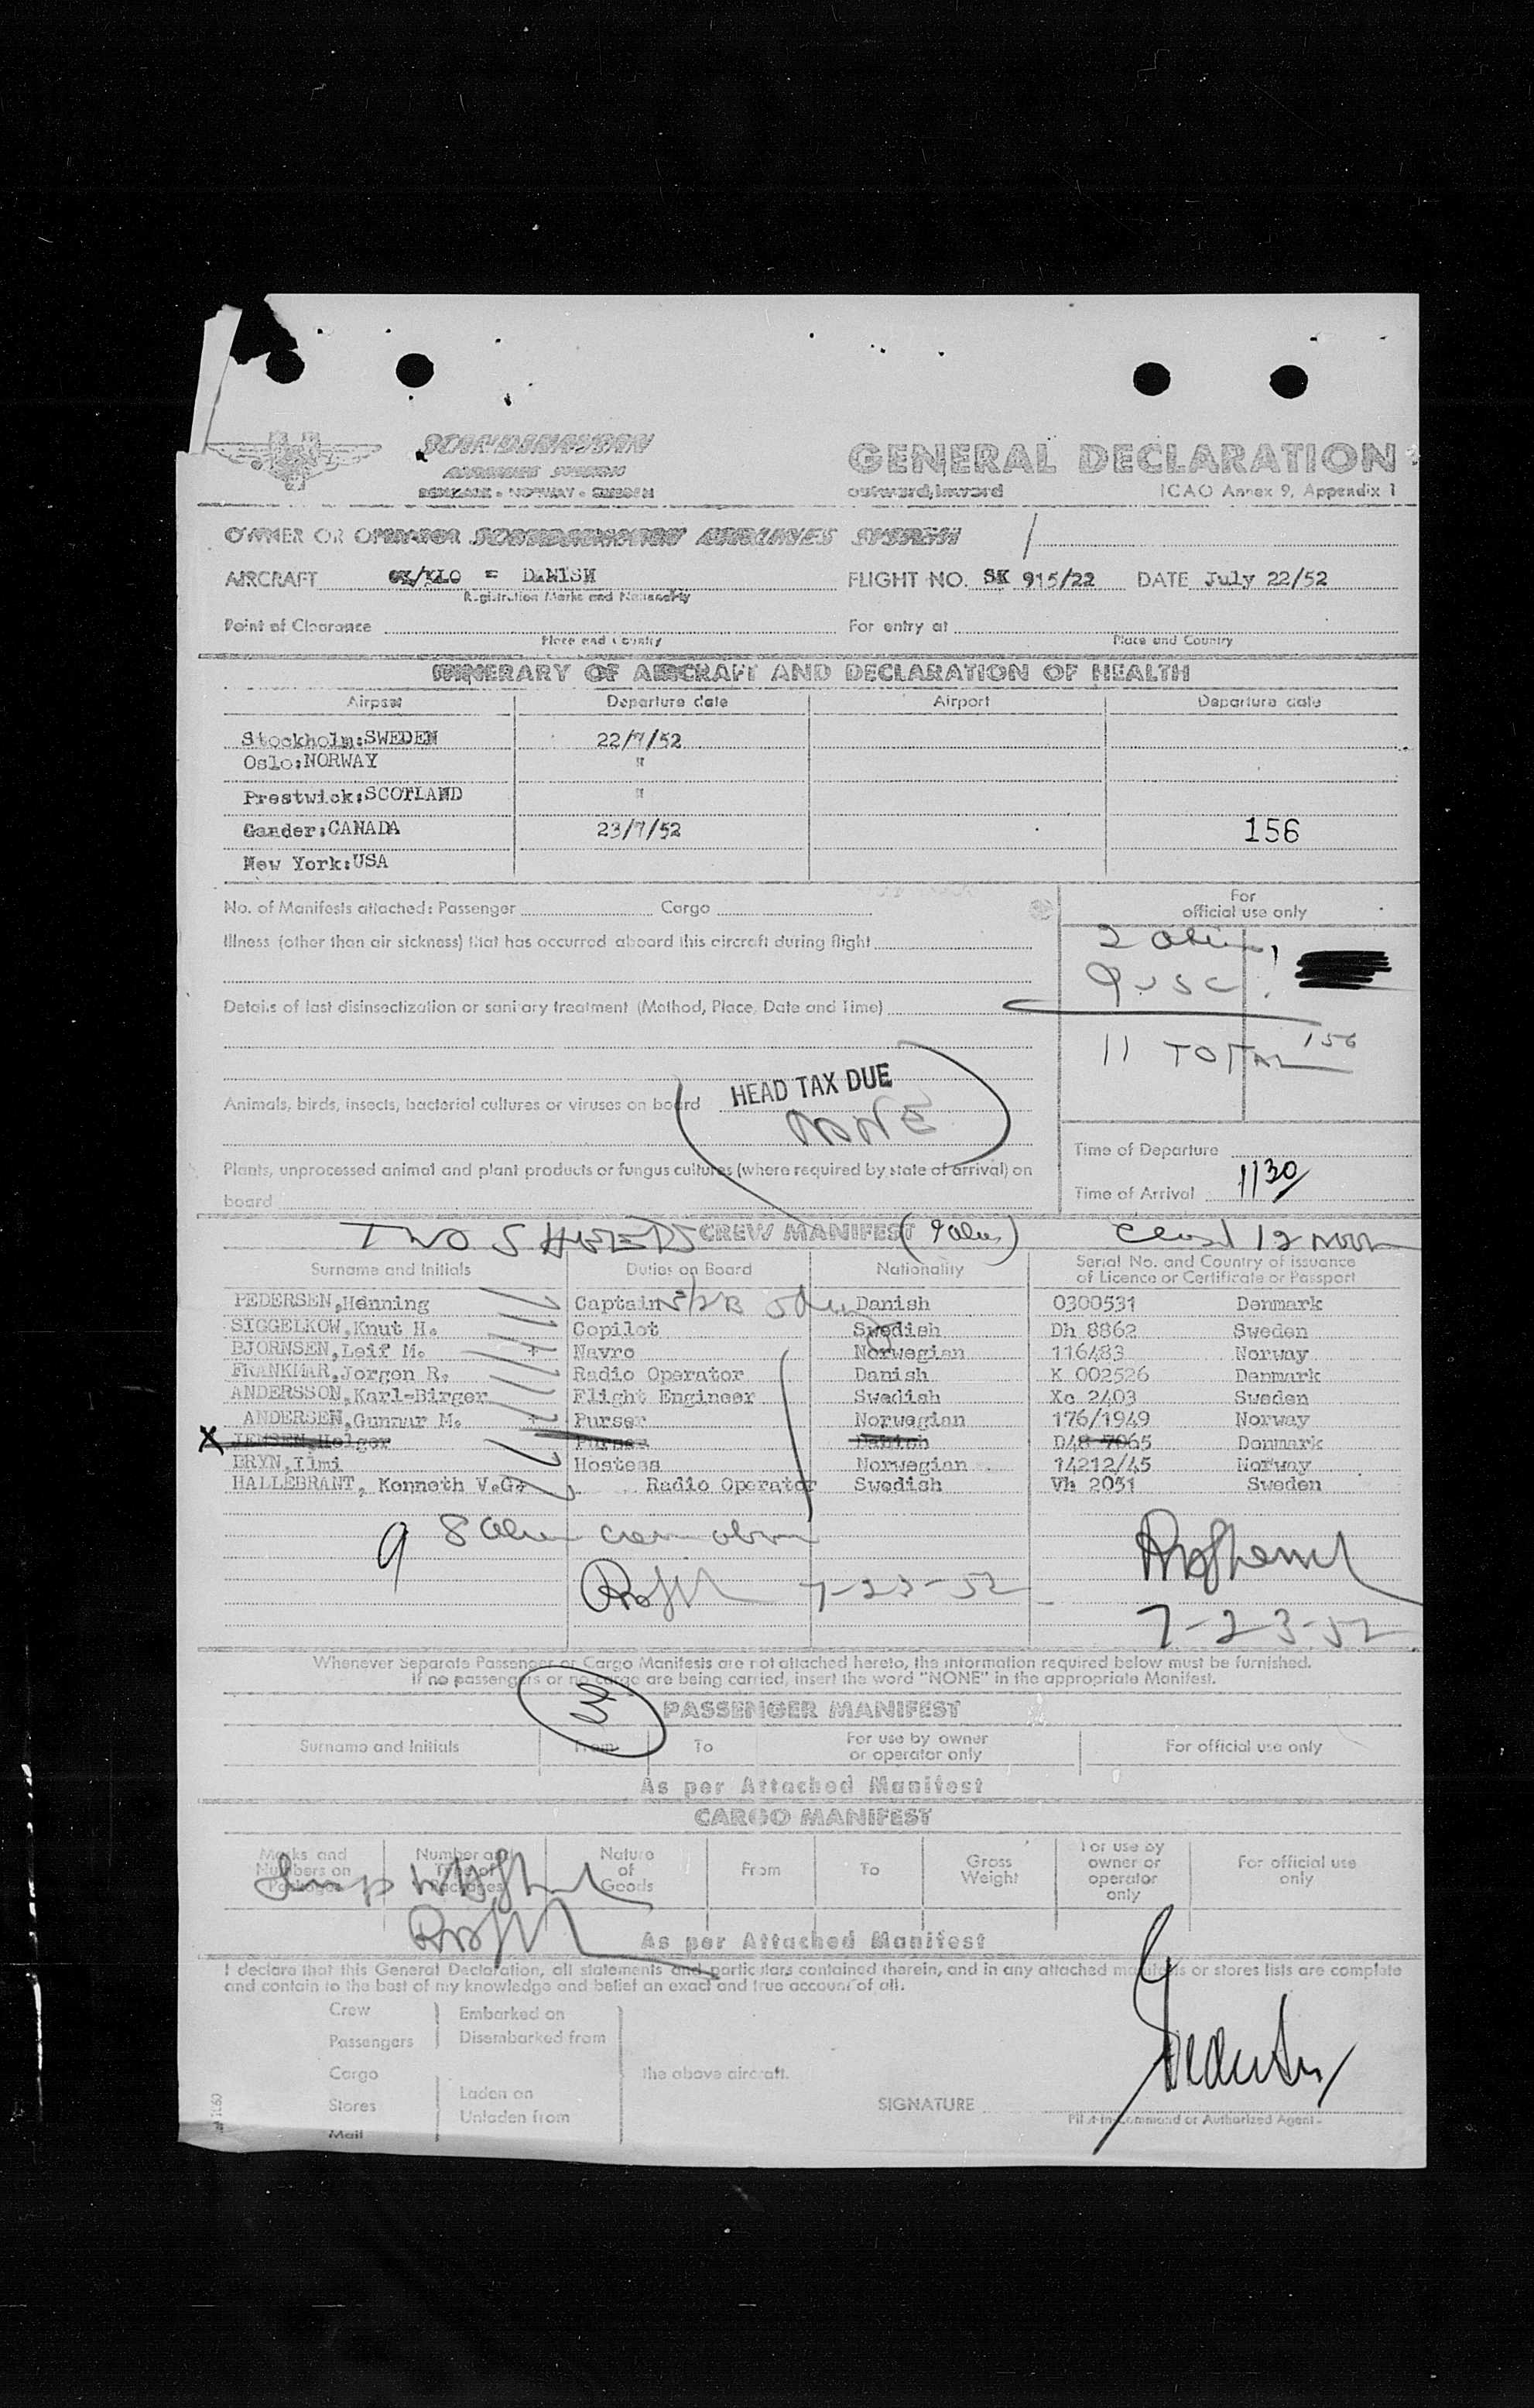 SCANDINAVIAN
AIRLINES SYSTEM
DENMARK - NORWAY - SWEDEN
GENERAL DECLARATION
outward/inward
ICAO Annex 9, Appendix 1
OWNER OR OPERATOR SCANDINAVIAN AIRLINES SYSTEM
AIRCRAFT = DANISH FLIGHT NO. SK 915/22 DATE July 22/52
Registration Marks and Nationality
Point of Clearance For entry at
Place and Country Place and Country
ITINERARY OF AIRCRAFT AND DECLARATION OF HEALTH
Airport Departure date Airport Departure date
Stockholm:SWEDEN 22/7/52
Oslo:NORWAY "
Prestwick:SCOTLAND "
Gander:CANADA 23/7/52 156
New York:USA
No. of Manifests attached: Passenger Cargo
For
official use only
Illness (other than air sickness) that has occurred aboard this aircraft during flight
2
9 USC
Details of last disinsectization or sanitary treatment (Method, Place, Date and Time)
11 TOTAL 156
HEAD TAX DUE
NONE
Animals, birds, insects, bacterial cultures or viruses on board
Time of Departure
Plants, unprocessed animal and plant products or fungus cultures (where required by state of arrival) on
board
Time of Arrival 1130
TWO SHEETS CREW MANIFEST 12 noon
Surname and Initials Duties on Board Nationality Serial No. and Country of issuance
of Licence or Certificate or Passport
PEDERSEN,Henning Captain Danish 0300531 Denmark
SIGGELKOW,Knut H. Copilot Swedish Dh 8862 Sweden
BJORNSEN,Leif M. + Navro Norwegian 116483 Norway
FRANKMAR,Jorgen R. Radio Operator Danish K 002526 Denmark
ANDERSSON,Karl-Birger Flight Engineer Swedish Xc 2403 Sweden
ANDERSEN,Gunnar M. + Purser Norwegian 176/1949 Norway
X JENSEN,Holger Purser Danish D48 7065 Denmark
BRYN,Ilmi Hostess Norwegian 14212/45 Norway
HALLEBRANT, Kenneth V.G. Radio Operator Swedish Vh 2051 Sweden
9 8
7-23-52
7-23-52
Whenever Separate Passenger or Cargo Manifests are not attached hereto, the information required below must be furnished.
If no passengers or no cargo are being carried, insert the word "NONE" in the appropriate Manifest.
PASSENGER MANIFEST
Surname and Initials From To For use by owner
or operator only For official use only
As per Attached Manifest
CARGO MANIFEST
Marks and
Numbers on
Packages Number and
Type of
Packages Nature
of
Goods From To Gross
Weight For use by
owner or
operator
only For official use
only
As per Attached Manifest
I declare that this General Declaration, all statements and particulars contained therein, and in any attached manifests or stores lists are complete
and contain to the best of my knowledge and belief an exact and true account of all.
Crew Embarked on
Passengers Disembarked from
Cargo the above aircraft.
Stores Laden on
Mail Unladen from
SIGNATURE
Pilot-in-Command or Authorized Agent